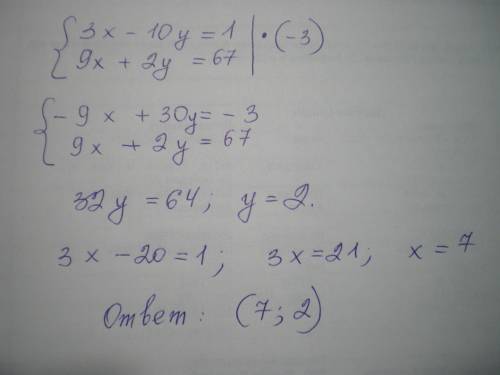 { 3x - 10y = 1 | · (-3)
9x + 2y = 67
{ - 9x + 30y = - 3
9x + 2y = 67
32y = 64; y = 2.
3x - 20 = 1; 3x = 21; x = 7
Ответ: (7; 2)